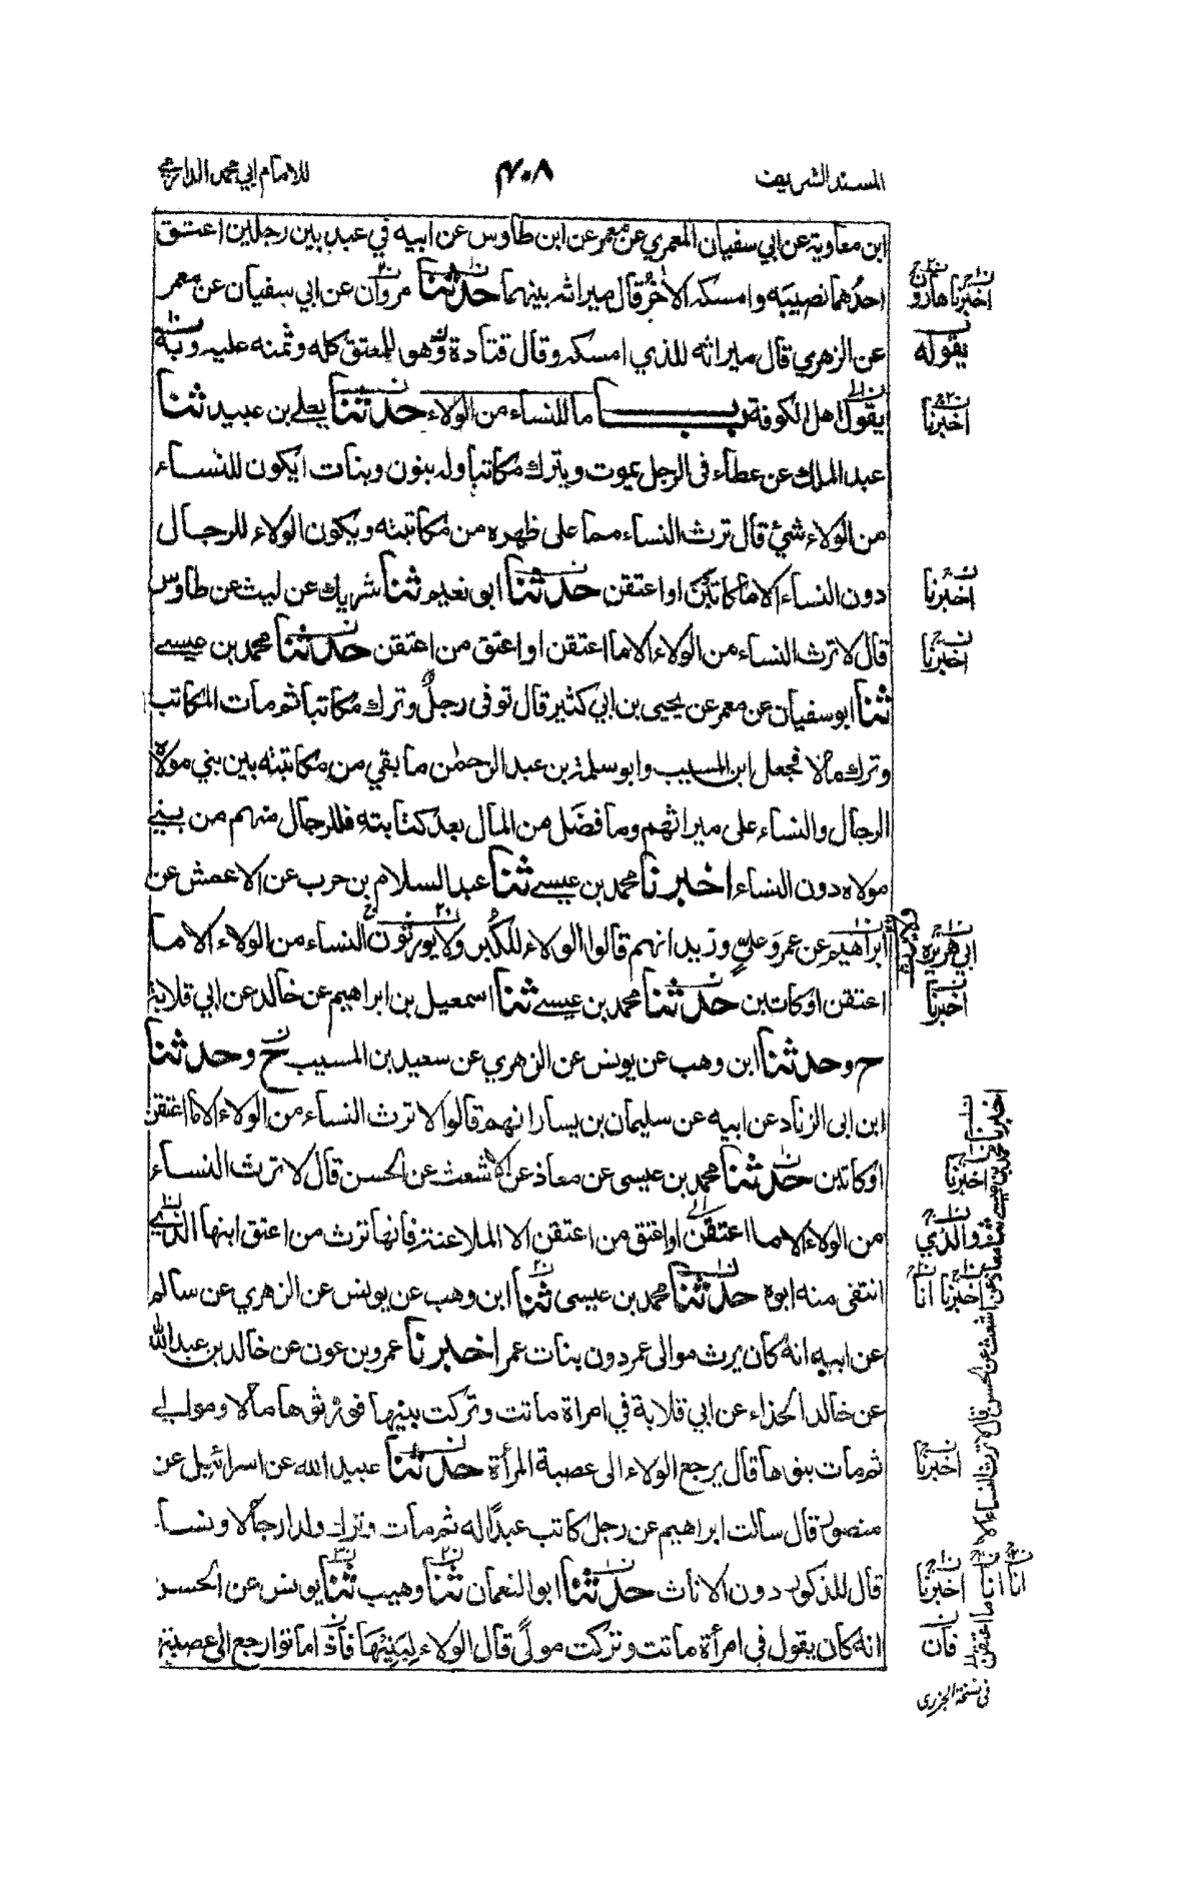 المسند الشريف
٤٠٨
للامام ابي محمد الدارمي
ابن معاوية عن ابي سفيان المعمري عن معمر عن ابن طاوس عن ابيه في عبد بين رجلين اعتق
احدهما نصيبه وامسكه الاخر قال ميراثه بينهما حدثنا مروان عن ابي سفيان عن معمر
عن الزهري قال ميراثه للذي امسكه وقال قتادة هو للمعتق كله وثمنه عليه وبه
يقول اهل الكوفة باب ما للنساء من الولاء حدثنا يعلى بن عبيد ثنا
عبد الملك عن عطاء في الرجل يموت ويترك مكاتبا وله بنون وبنات ايكون للنساء
من الولاء شئ قال ترث النساء مما على ظهره من مكاتبته ويكون الولاء للرجال
دون النساء الا ما كاتبن او اعتقن حدثنا ابو نعيم ثنا شريك عن ليث عن طاوس
قال لا ترث النساء من الولاء الا ما اعتقن او اعتق من اعتقن حدثنا محمد بن عيسے
ثنا ابو سفيان عن معمر عن يحيى بن ابي كثير قال توفى رجل وترك مكاتبا ثم مات المكاتب
وترك مالا فجعل ابن المسيب وابو سلمة بن عبد الرحمٰن ما بقي من مكاتبته بين بني مولاه
الرجال والنساء على ميراثهم وما فضل من المال بعد كتابته فللرجال منهم من بني
مولاه دون النساء اخبرنا محمد بن عيسے ثنا عبد السلام بن حرب عن الاعمش عن
ابراهيم عن عمر وعلي وزيد انهم قالوا الولاء للكبر ولا يورثون النساء من الولاء الا ما
اعتقن او كاتبن حدثنا محمد بن عيسے ثنا اسمعيل بن ابراهيم عن خالد عن ابي قلابة
ح وحدثنا ابن وهب عن يونس عن الزهري عن سعيد بن المسيب ح وحدثنا
ابن ابى الزناد عن ابيه عن سليمان بن يسار انهم قالوا لا ترث النساء من الولاء الا ما اعتقن
او كاتبن حدثنا محمد بن عيسى عن معاذ عن الاشعث عن الحسن قال لا ترث النساء
من الولاء الا ما اعتقن او اعتق من اعتقن الا الملاعنة فانها ترث من اعتق ابنها الذي
انتفى منه ابوه حدثنا محمد بن عيسى ثنا ابن وهب عن يونس عن الزهري عن سالم
عن ابيه انه كان يرث موالى عمر دون بنات عمر اخبرنا عمرو بن عون عن خالد بن عبد الله
عن خالد الحذاء عن ابي قلابة في امراة ماتت وتركت بنيها فورثوها مالا وموالي
ثم مات بنوها قال يرجع الولاء الى عصبة المرأة حدثنا عبيد الله عن اسرائيل عن
منصور قال سالت ابراهيم عن رجل كاتب عبدا له ثم مات وترك ولدا رجالا ونساء
قال للذكور دون الاناث حدثنا ابو النعمان ثنا وهيب ثنا يونس عن الحسن
انه كان يقول في امرأة ماتت وتركت مولى قال الولاء لبنيها فاذا ماتوا رجع الى عصبتها
اخبرنا هارون
يقوله
اخبرنا
اخبرنا
اخبرنا
ابي هريرة
اخبرنا
اخبرنا
والذي
اخبرنا انا
اخبرنا
اخبرنا انا انا
فان
اخبرنا محمد بن عيسے ثنا معاذ عن اشعث عن الحسن قال لا ترث النساء الا ما اعتقن
في نسخة الجزري